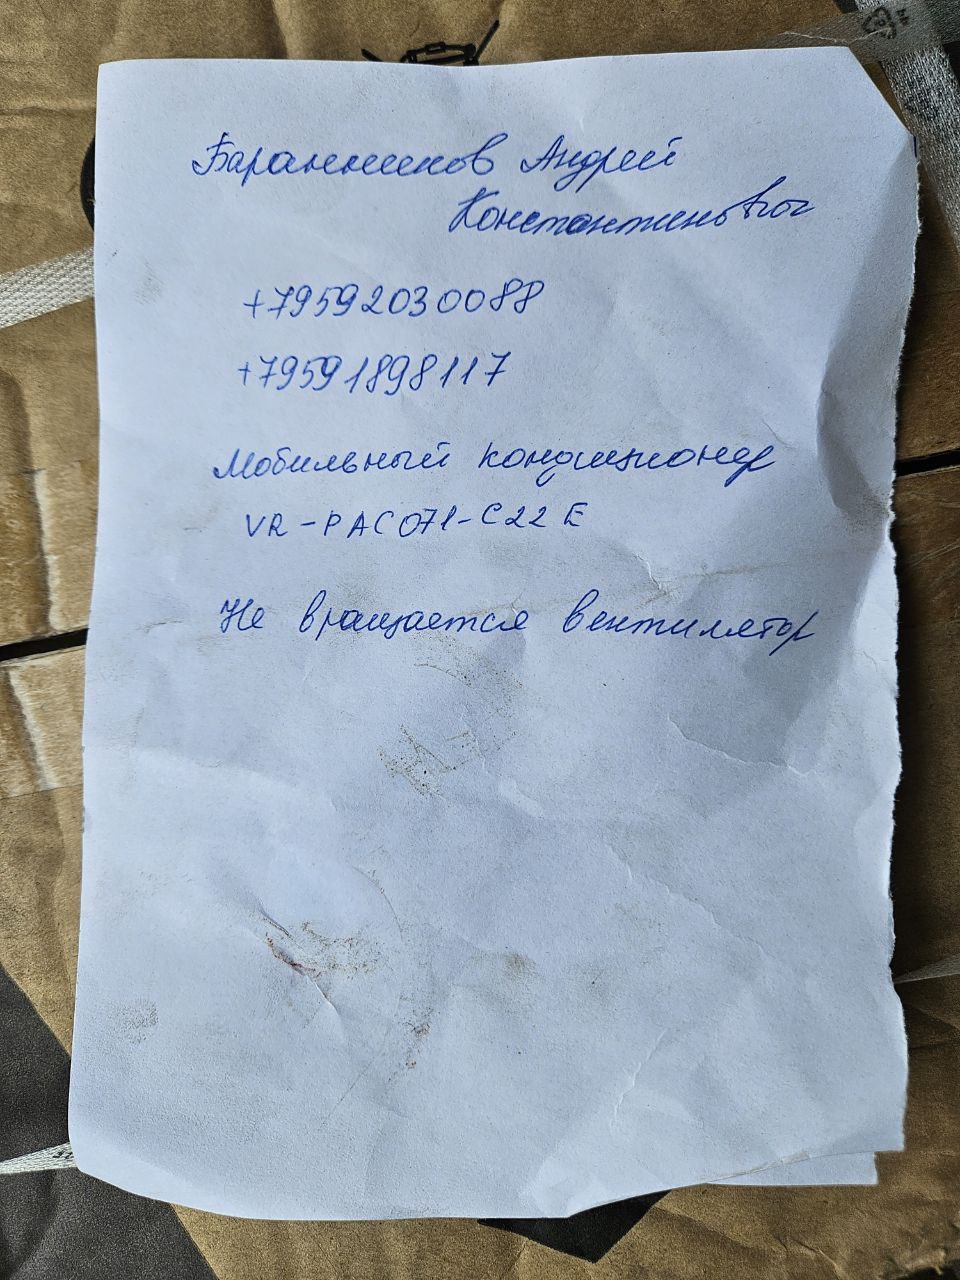 Баранников Андрей
Константинович
+79592030088
+79591898117
Мобильный кондиционер
VR-PAC071-C22E
Не вращается вентилятор